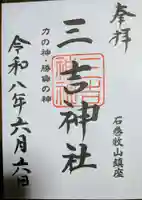 奉拝
石巻牧山鎮座
三吉神社
力の神・勝負の神
令和八年六月六日